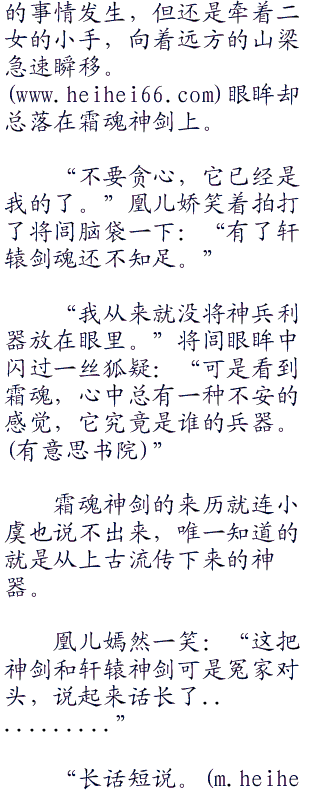 的事情发生，但还是牵着二
女的小手，向着远方的山梁
急速瞬移。
(www.heihei66.com)眼眸却
总落在霜魂神剑上。
“不要贪心，它已经是
我的了。”凰儿娇笑着拍打
了将闾脑袋一下：“有了轩
辕剑魂还不知足。”
“我从来就没将神兵利
器放在眼里。”将闾眼眸中
闪过一丝狐疑：“可是看到
霜魂，心中总有一种不安的
感觉，它究竟是谁的兵器。
(有意思书院)”
霜魂神剑的来历就连小
虞也说不出来，唯一知道的
就是从上古流传下来的神
器。
凰儿嫣然一笑：“这把
神剑和轩辕神剑可是冤家对
头，说起来话长了..
.........”
“长话短说。(m.heihe